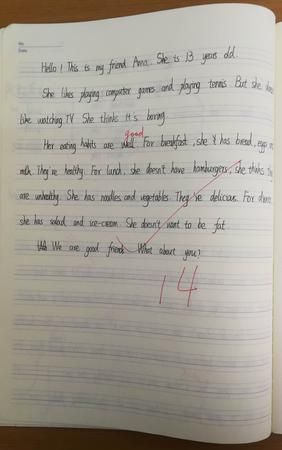 Hello! This is my friend Anna. She is 13 years old.
She likes playing computer games and playing tennis. But she does
like watching TV. She thinks It's boring.
good
Her eating habits are well. For breakfast, she has bread, eggs
milk. They're healthy. For lunch, she doesn't have hamburgers, she thinks
are unhealthy. She has noodles and vegetables. They're delicious. For
she has salad and ice-cream. She doesn't want to be fat.
We are good friends. What about you?
14